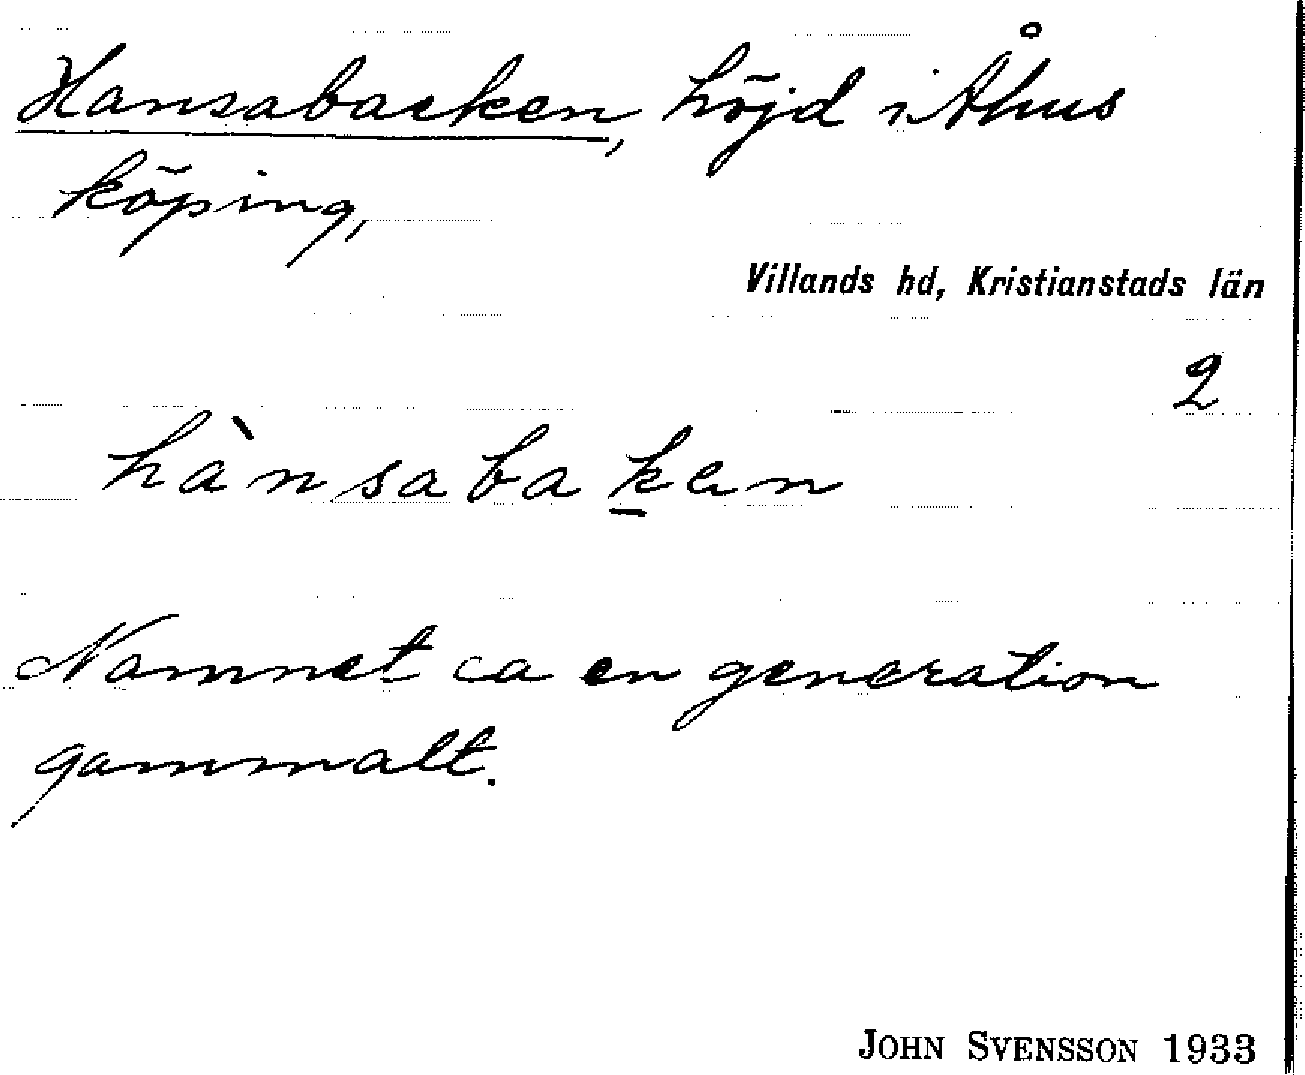 Hansabacken, höjd i Åhus
köping,
Villands hd, Kristianstads län
2
hànsabak̲en
Namnet ca en generation
gammalt.
JOHN SVENSSON 1933